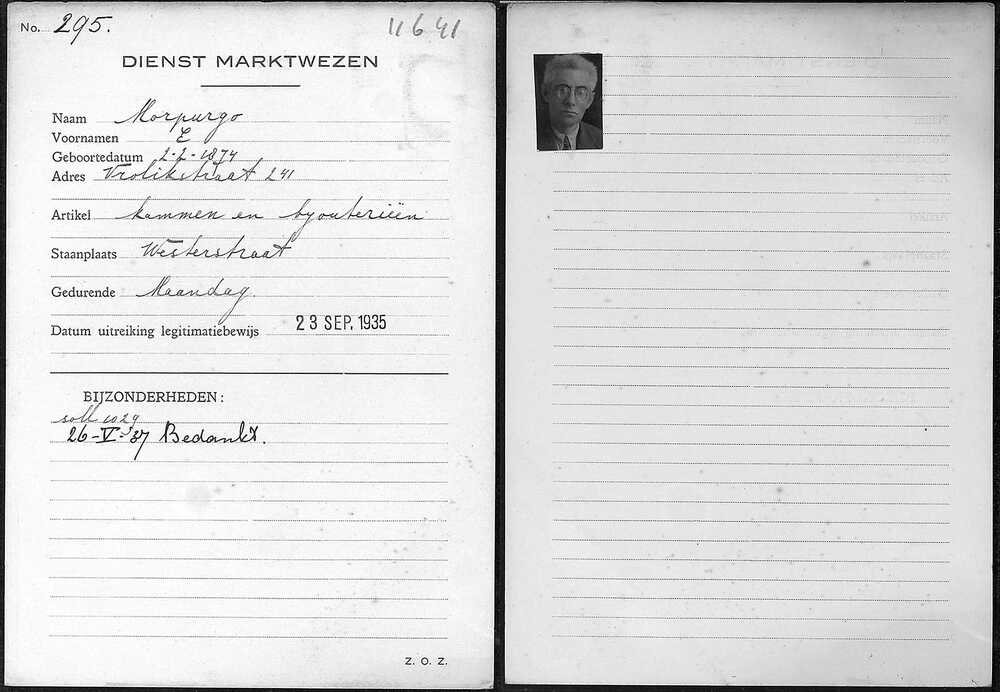 No. 295.
11 6 41
DIENST MARKTWEZEN
Naam Morpurgo
Voornamen E
Geboortedatum 2-2-1874
Adres Vrolikstraat 241
Artikel kammen en byouterieën
Staanplaats Westerstraat
Gedurende Maandag.
Datum uitreiking legitimatiebewijs 23 SEP. 1935
BIJZONDERHEDEN:
soll 1029
26-V-'37 Bedankt.
Z. O. Z.